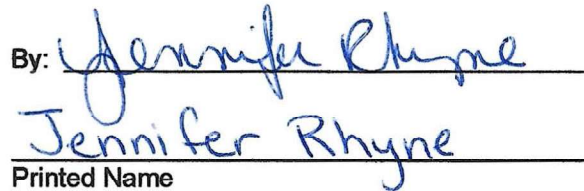 By: Jennifer Rhyne
Jennifer Rhyne
Printed Name